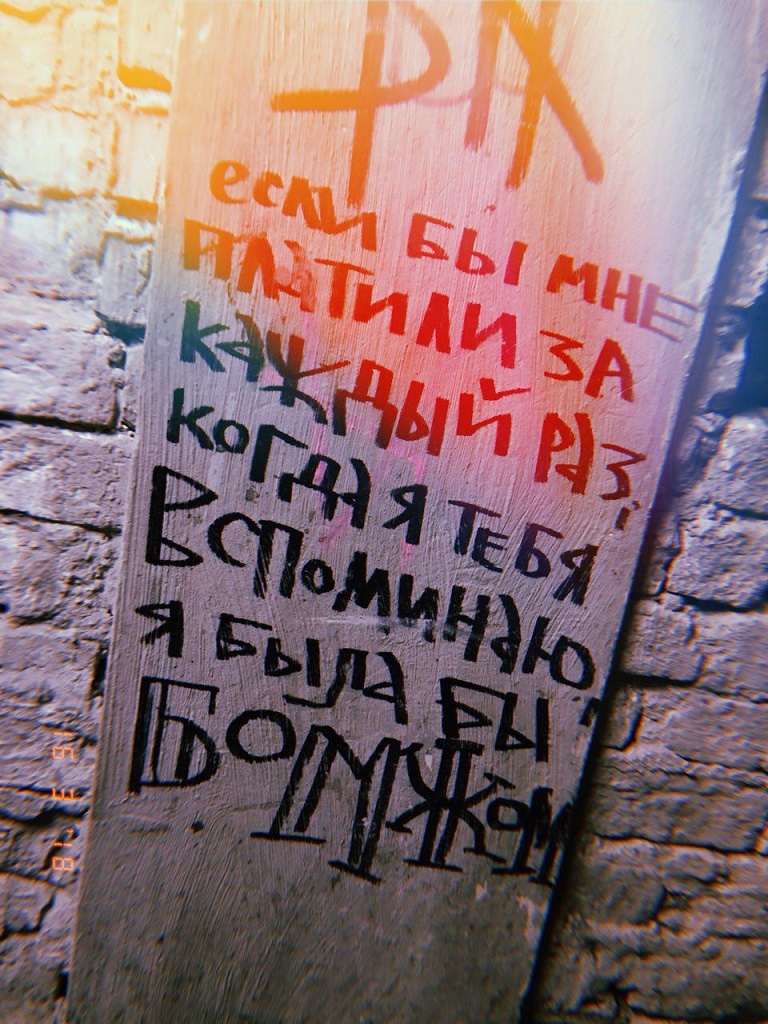 РА
если бы мне
платили за
каждый раз,
когда я тебя
вспоминаю
я была бы
БОМЖОМ
16 3 '18